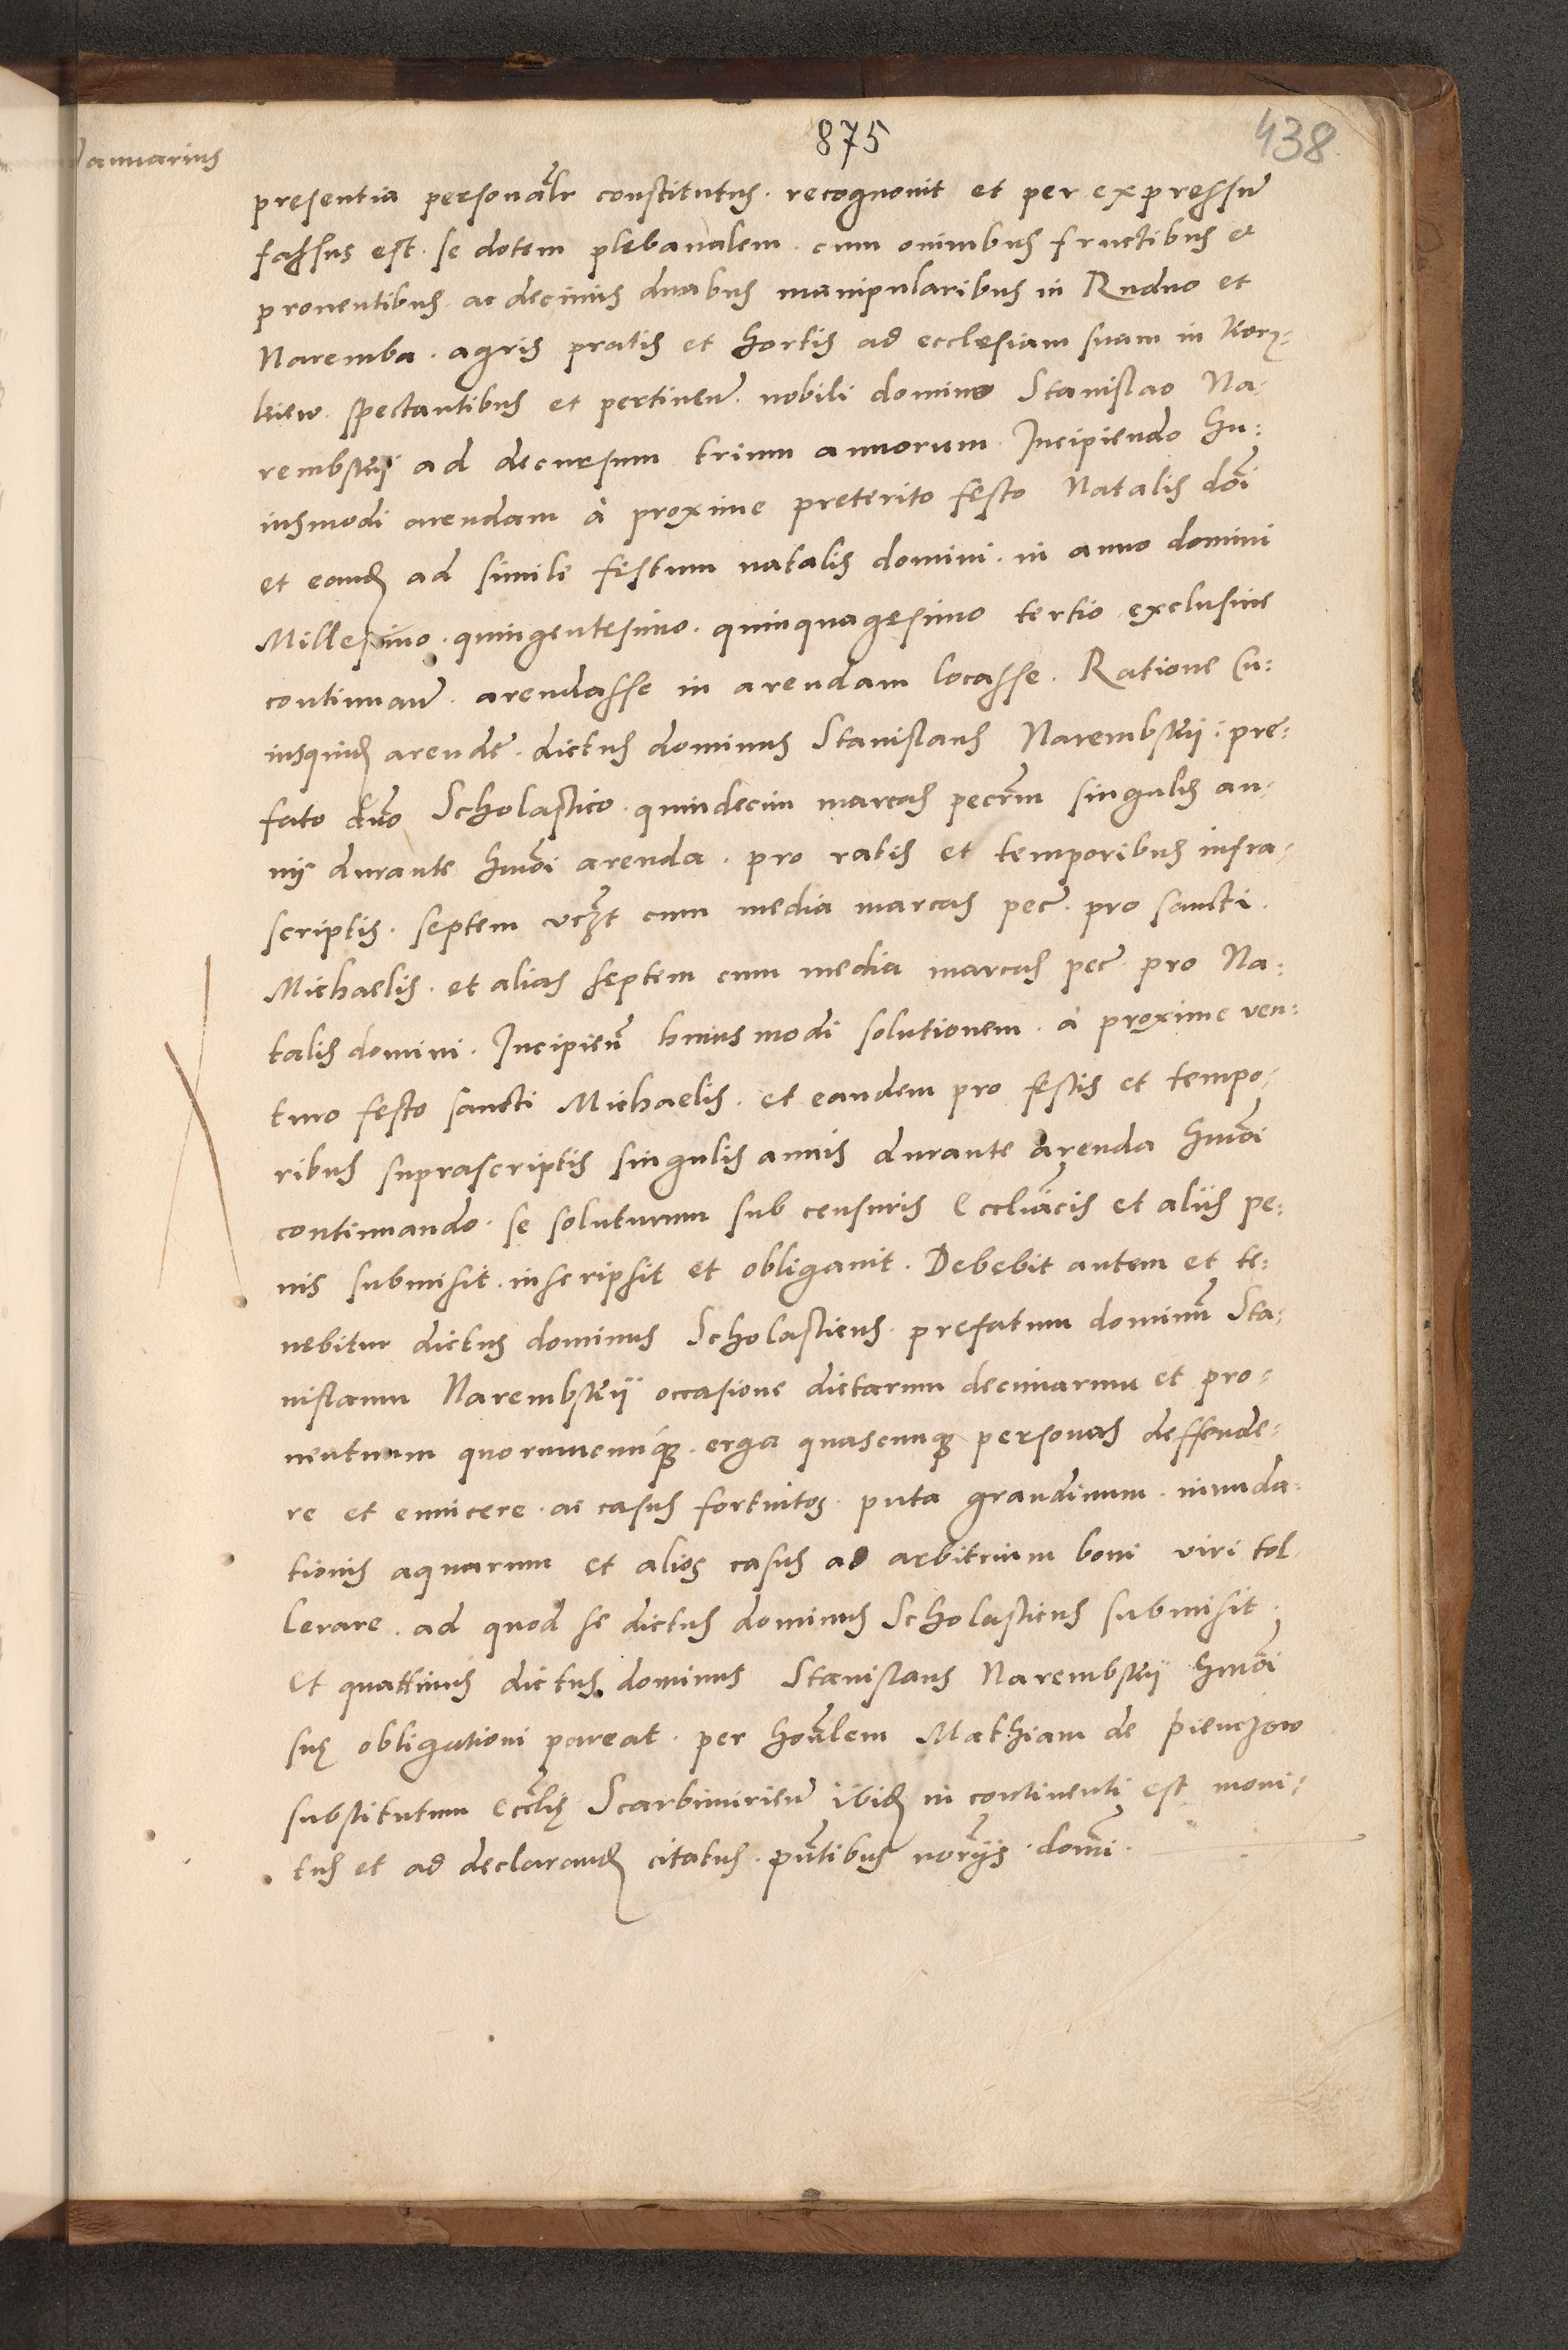 875
438
Januarius
presentia personalr constitutus. recognouit et per expressu
fassus est. se dotem plebanalem. cum omnibus fructibus et
prouentibus. ac decimis duabus manipularibus in Rudno et
Naremba. agris pratis et hortis ad ecclesiam suam in Korz-
kiew. spectantibus et pertinen. nobili domino Stanislao Na:
rembskij ad decursum trium annorum. Incipiendo hu:
iusmodi arendam à proxime preterito festo Natalis doi
et eand ad simile festum natalis domini. in anno domini
Millesimo. quingentesimo. quinquagesimo tertio exclusiue
continuan. arendasse in arendam locasse. Ratione cu:
iusquid arende. dictus dominus Stanislaus Narembskij: pre:
fato dno Scholastico. quindecim marcas pecrm singulis an-
nis durante hmoi arenda. pro ratis et temporibus infra-
scriptis. septem vczt cum media marcas pec. pro sancti.
Michaelis. et alias septem cum media marcas pec pro Na:
talis domini. Incipien huiusmodi solutionem. à proxime ven:
turo festo sancti Michaelis. et eandem pro festis et tempo-
ribus suprascriptis singulis annis durante arenda hmoi
continuando. se soluturum sub censuris Eccliacis et aliis pe:
nis submisit. inscripsit et obligauit. Debebit autem et te:
nebitur dictus dominus Scholasticus. prefatum dominu Sta:
nislaum Narembskij occasione dictarum decimarum et pro-
uentuum quorumcunq. erga quascunq personas deffende-
re et euincere. ac casus fortuitos. puta grandinum. inunda-
tionis aquarum et alios casus ad arbitrium boni viri tol-
lerare. ad quod se dictus dominus Scholasticus submisit.
Et quattinus dictus dominus Stanislaus Narembskij hmoi
suę obligationi pareat. per honlem Mathiam de Pienczow
substitutum Ecclię Scarbimirien ibid in continenti est moni-
tus et ad declarand citatus. pntibus norijs. domi.